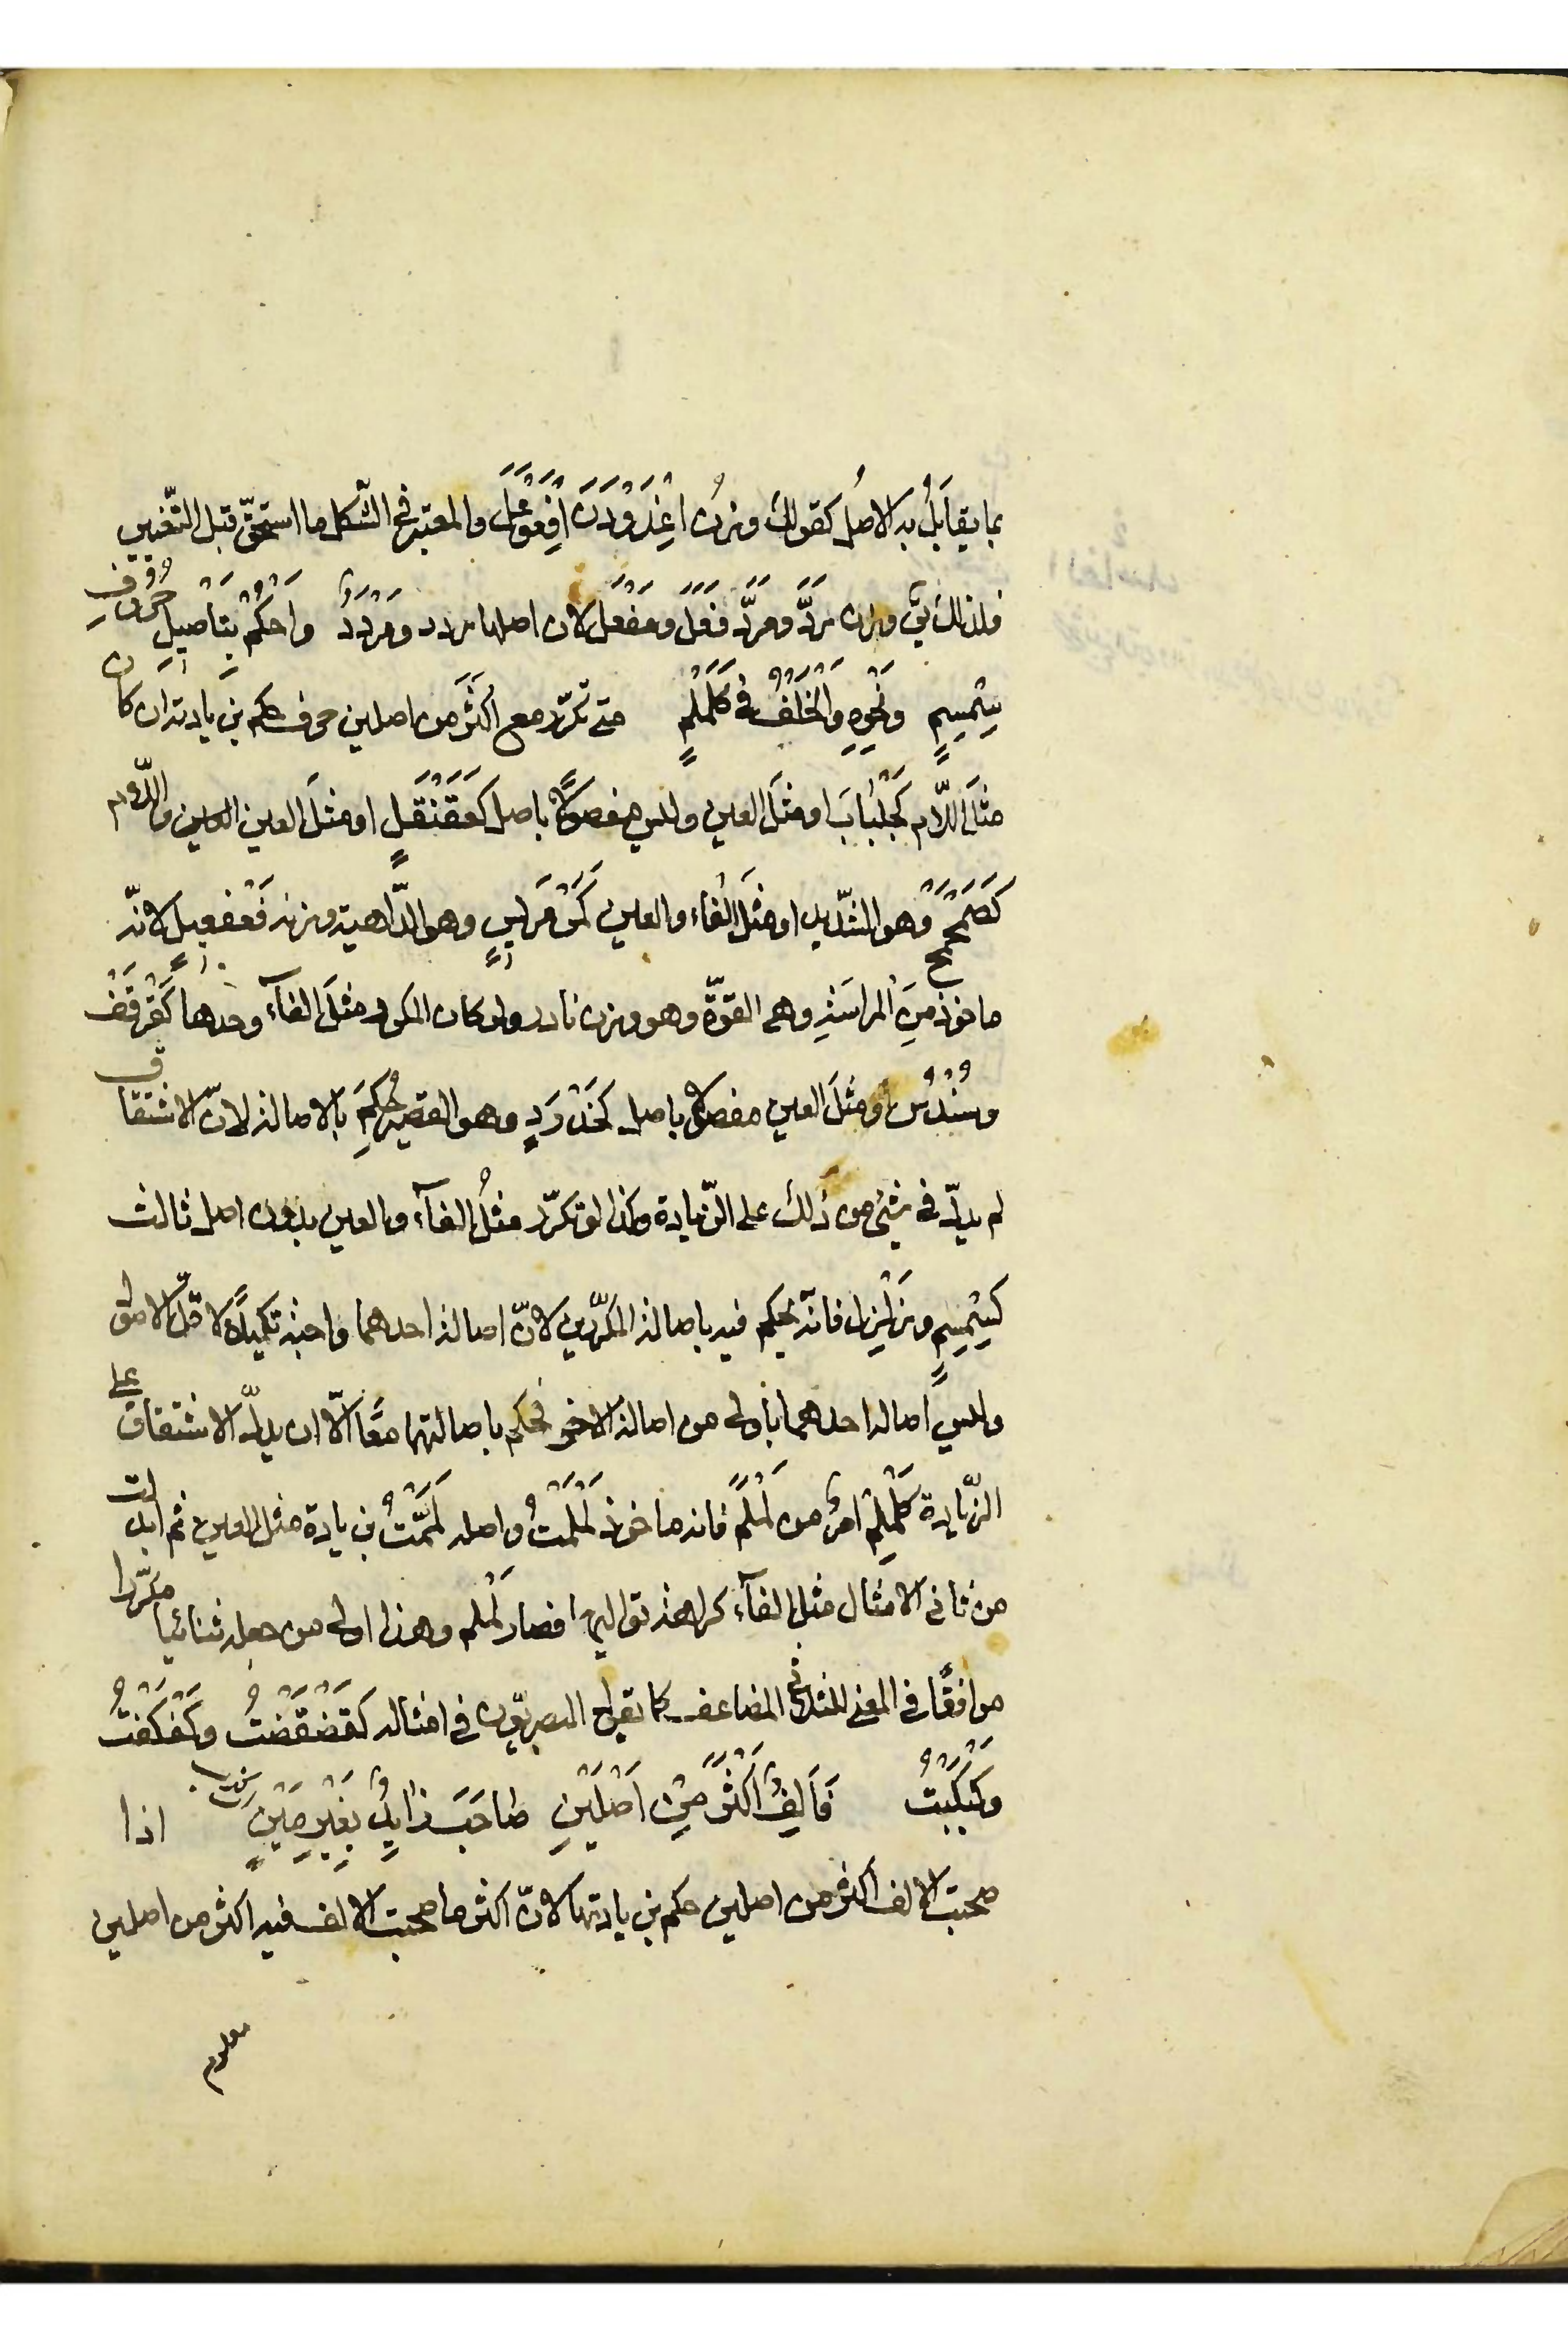 بما يقابَلُ به الاصلُ كقولك وزنُ اغْدَوْدَنَ افْعَوْعَلَ والمعتبر في الشّكل ما استحقّ قبل التّغيير
فلذالك فى وزن مَرَدَّ ومَرَدَّ فَعَلَّ ومَفْعَل لان اصلها مردد ومَرْدَدٌ وَاحْكُمْ بِتَأصِيلِ حُرُوفِ
سِمْسِمِ وَنَحْوِهِ وَالْخُلْفُ فِي كَلَمْلِمٍ متى تكرّر مع اكثَرَ من اصلين حرف حكم بزيادته ان كان
مثلَ اللّام كَجَلْبَابَ او مثلَ العين وليس مفصولًا باصل كَعَقَنْقَلٍ او مثلَ العين واللّام
كَصَمَحْمَحٍ وهو الشّديد او مثلَ الفاء والعين كَمَرْمَرِيسٍ وهو الدّاهية وزنه فَعْفَعِيل لانّه
ماخوذ مِنَ المراسَةِ وهى القوّة وهو وزن نادر ولو كان المكرر مثلَ الفآء وحدها كَقَرْقَفَ
وسُنْدُسٍ او مثلَ العين مفصولا باصل كَحَدْرَدٍ وهو القصير حُكِمَ بالاصالة لانّ الاشتقاق
لم يدلّ فى شئ من ذلك على الزّيادة وكذا لو تكرّر مثلُ الفآء والعين بدون اصل ثالث
كسِمْسِمٍ وزلْزِل فانّه يحكم فيه باصالة المكرّرين لانّ اصالة احدهما واجبة تكميلًا لاقلّ الاصول
وليس اصالة احدهما باَولى من اصالة الاخر فحكم باصالتهما معًا الّا ان يدلّ الاشتقاق على
الزّيادة كَلَمْلِمْ امرٌ من لَمْلَمَ فانه ماخوذ لَمْلَمْتُ واصله لَمَّمْتُ بزيادة مثل العين ثم ابدلت
من ثانى الامثال مثل الفآء كراهة تواليها فصار لَمْلم وهذا اولى من جعله ثنائيا مكرّرا
موافقًا فى المعنى للثلاثى المضاعف كما تقول البصريّون فى امثاله كقَضْقَضْتُ وكَفْكَفْتُ
وكَبْكَبْتُ فَاَلِفٌ اَكْثَرَ مِنْ اَصْلَيْنِ صَاحَبَ زَايِدٌ بِغَيْرِ مَيْنِ اذا
صحبت الالف اكثر من اصلين حكم بزيادتها لانّ اكثر ما صحبت الالف فيه اكثر من اصلين
معلوم